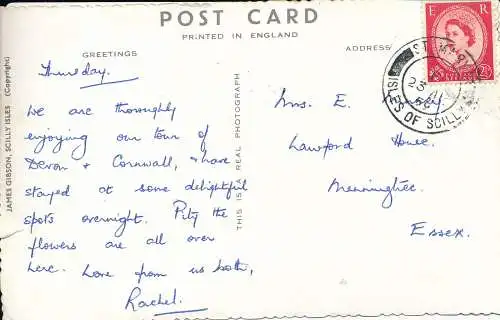 POST CARD
PRINTED IN ENGLAND
GREETINGS
ADDRESS
Thursday.
We are thoroughly
enjoying our tour of
Devon & Cornwall, & have
stayed at some delightful
spots overnight. Pity the
flowers are all over
here. Love from us both,
Rachel.
JAMES GIBSON, SCILLY ISLES (Copyright)
THIS IS A REAL PHOTOGRAPH
Mrs. E.
Lawford House.
Manningtree.
Essex.
E R
ST MARY'S
23
ISLES OF SCILLY
2½